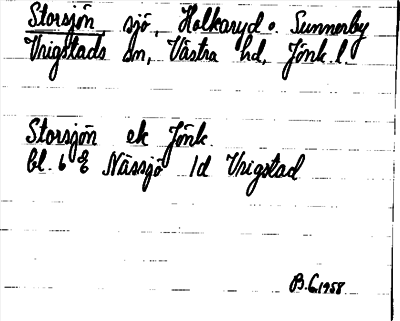 Storsjön sjö, Holkaryd o. Sunnerby
Vrigstads sn, Västra hd, Jönk. l.
Storsjön ek Jönk.
bl. 6 E Nässjö 1d Vrigstad
B. L. 1958